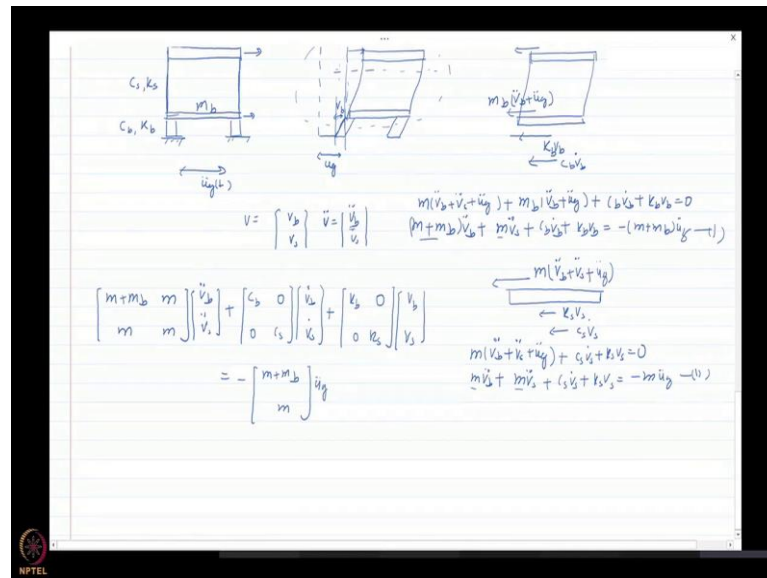 ...
X
c_s, k_s
m_b
c_b, k_b
ü_g(t)
v_b
u_g
m_b(v̈_b+ü_g)
k_b v_b
c_b v̇_b
v = [v_b v_s] v̈ = [v̈_b v̈_s]
m(v̈_b+v̈_s+ü_g) + m_b(v̈_b+ü_g) + c_b v̇_b + k_b v_b = 0
(m+m_b)v̈_b + m v̈_s + c_b v̇_b + k_b v_b = -(m+m_b)ü_g —(1)
m(v̈_b+v̈_s+ü_g)
k_s v_s
c_s v̇_s
m(v̈_b+v̈_s+ü_g) + c_s v̇_s + k_s v_s = 0
m v̈_b + m v̈_s + c_s v̇_s + k_s v_s = -m ü_g —(1)
[m+m_b m; m m][v̈_b; v̈_s] + [c_b 0; 0 c_s][v̇_b; v̇_s] + [k_b 0; 0 k_s][v_b; v_s]
= -[m+m_b; m] ü_g
NPTEL